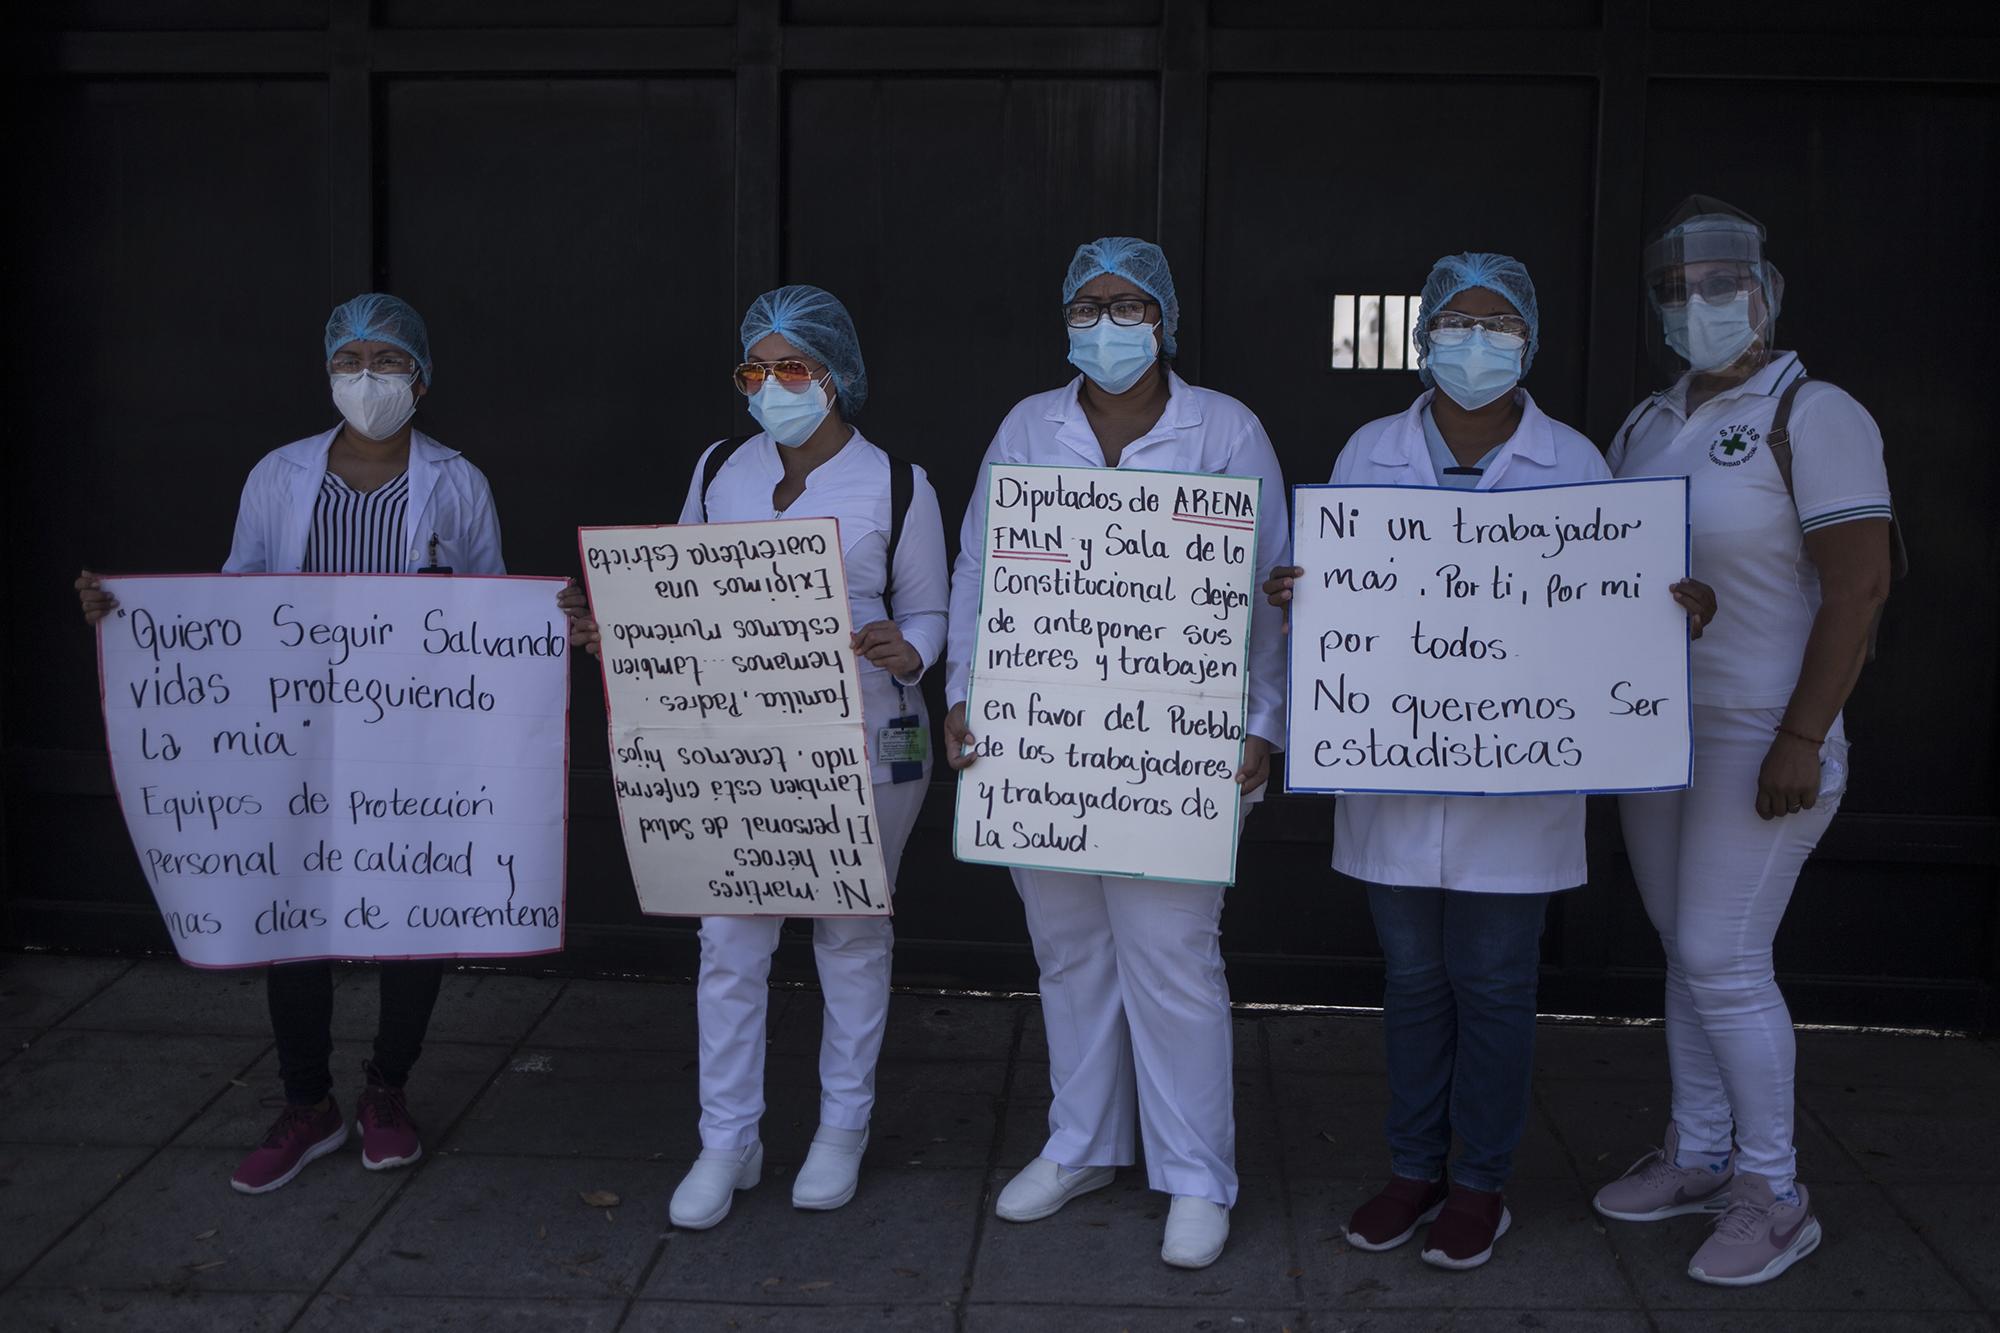 "Quiero Seguir Salvando
vidas proteguiendo
La mia"
Equipos de Protección
personal de calidad y
mas días de cuarentena
"Ni martires"
ni héroes
El personal de Salud
también está enferma
ndo, tenemos hijos
familia, Padres.
hemanos... también
estamos muriendo.
Exigimos una
cuarentena Estricta
Diputados de ARENA
FMLN y Sala de lo
Constitucional dejen
de anteponer sus
interes y trabajen
en favor del Pueblo
de los trabajadores
y trabajadoras de
La Salud.
Ni un trabajador
mas. Por ti, Por mi
por todos.
No queremos Ser
estadisticas
STISSS
POR LA SEGURIDAD SOCIAL